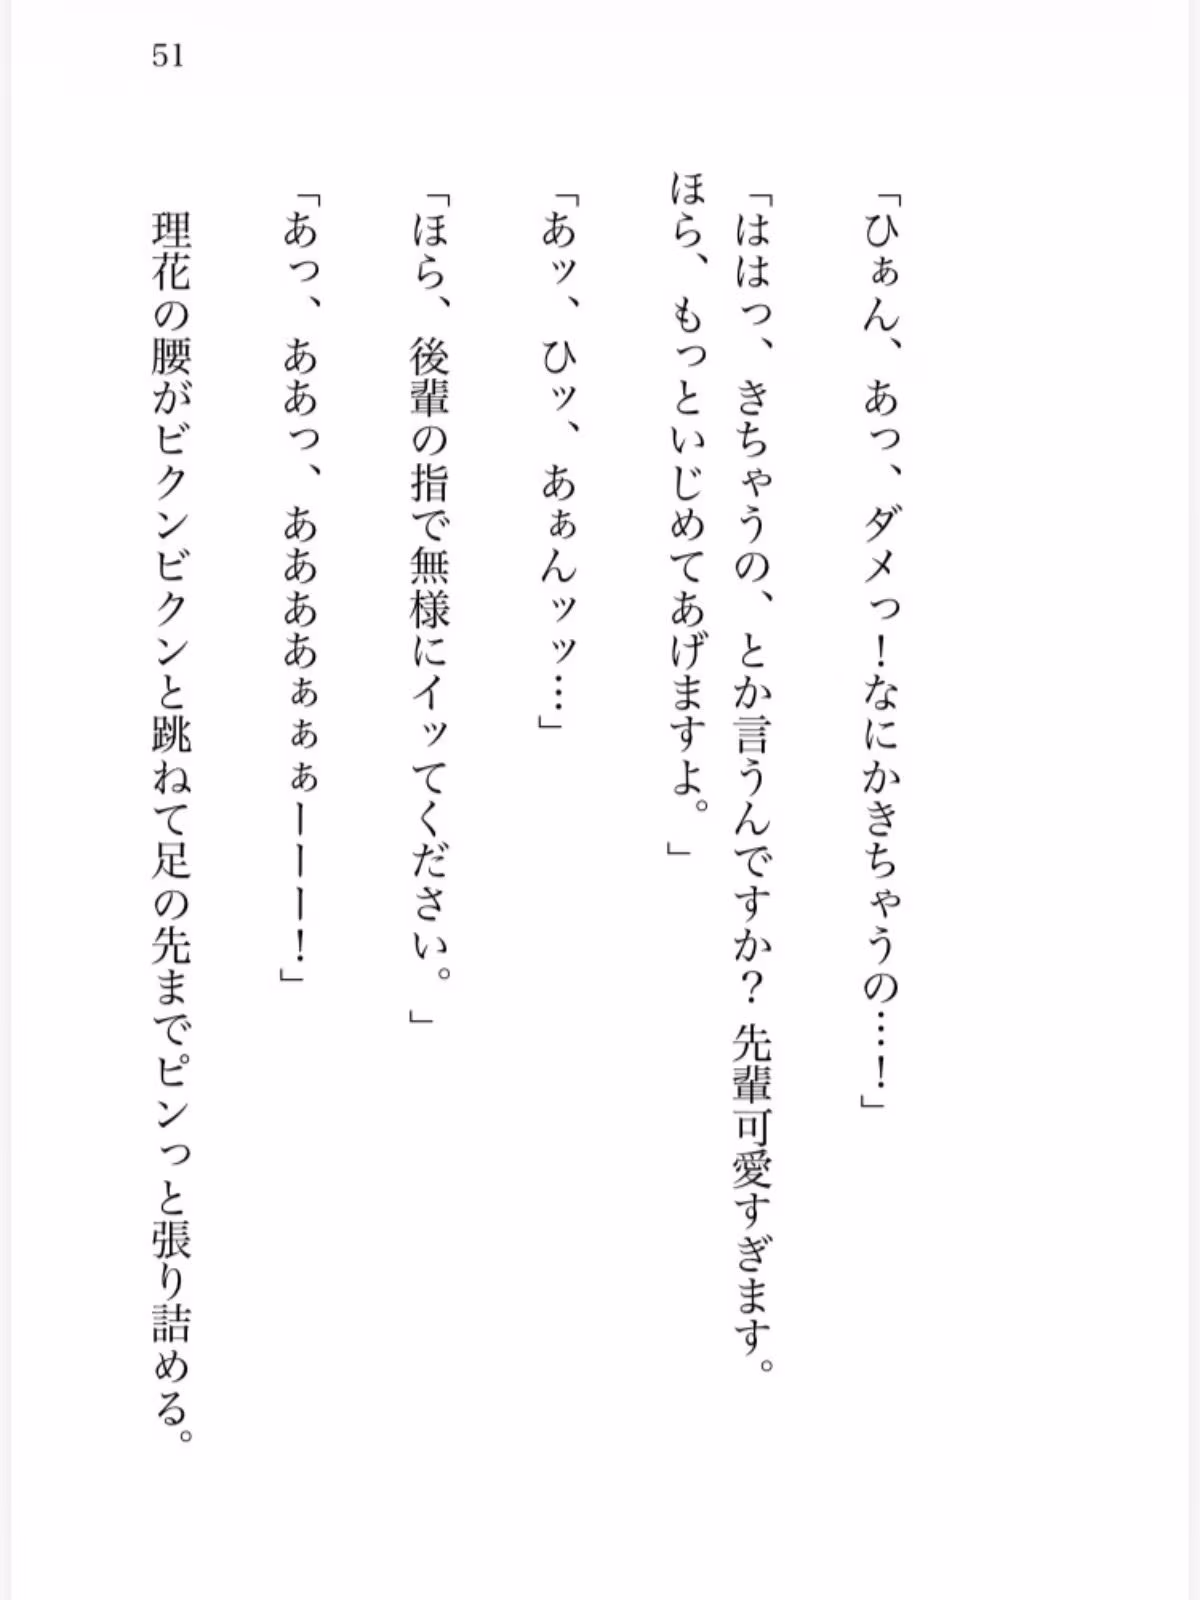 51
「ひぁん、あっ、ダメっ！なにかきちゃうの…！」
「ははっ、きちゃうの、とか言うんですか？ 先輩可愛すぎます。
ほら、もっといじめてあげますよ。」
「あッ、ひッ、あぁんッッ…」
「ほら、後輩の指で無様にイッてください。」
「あっ、ああっ、ああああぁぁぁーーー！」
理花の腰がビクンビクンと跳ねて足の先までピンっと張り詰める。